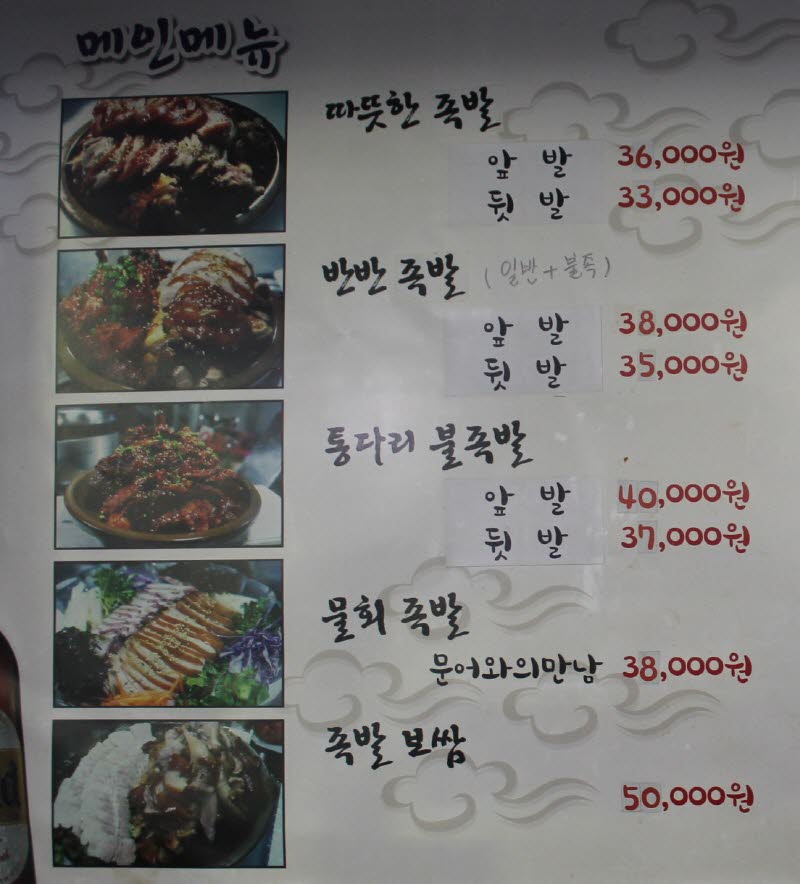 메인메뉴
따뜻한 족발
앞 발 36,000원
뒷 발 33,000원
반반 족발 (일반+불족)
앞 발 38,000원
뒷 발 35,000원
통다리 불족발
앞 발 40,000원
뒷 발 37,000원
물회 족발
문어와의만남 38,000원
족발 보쌈
50,000원